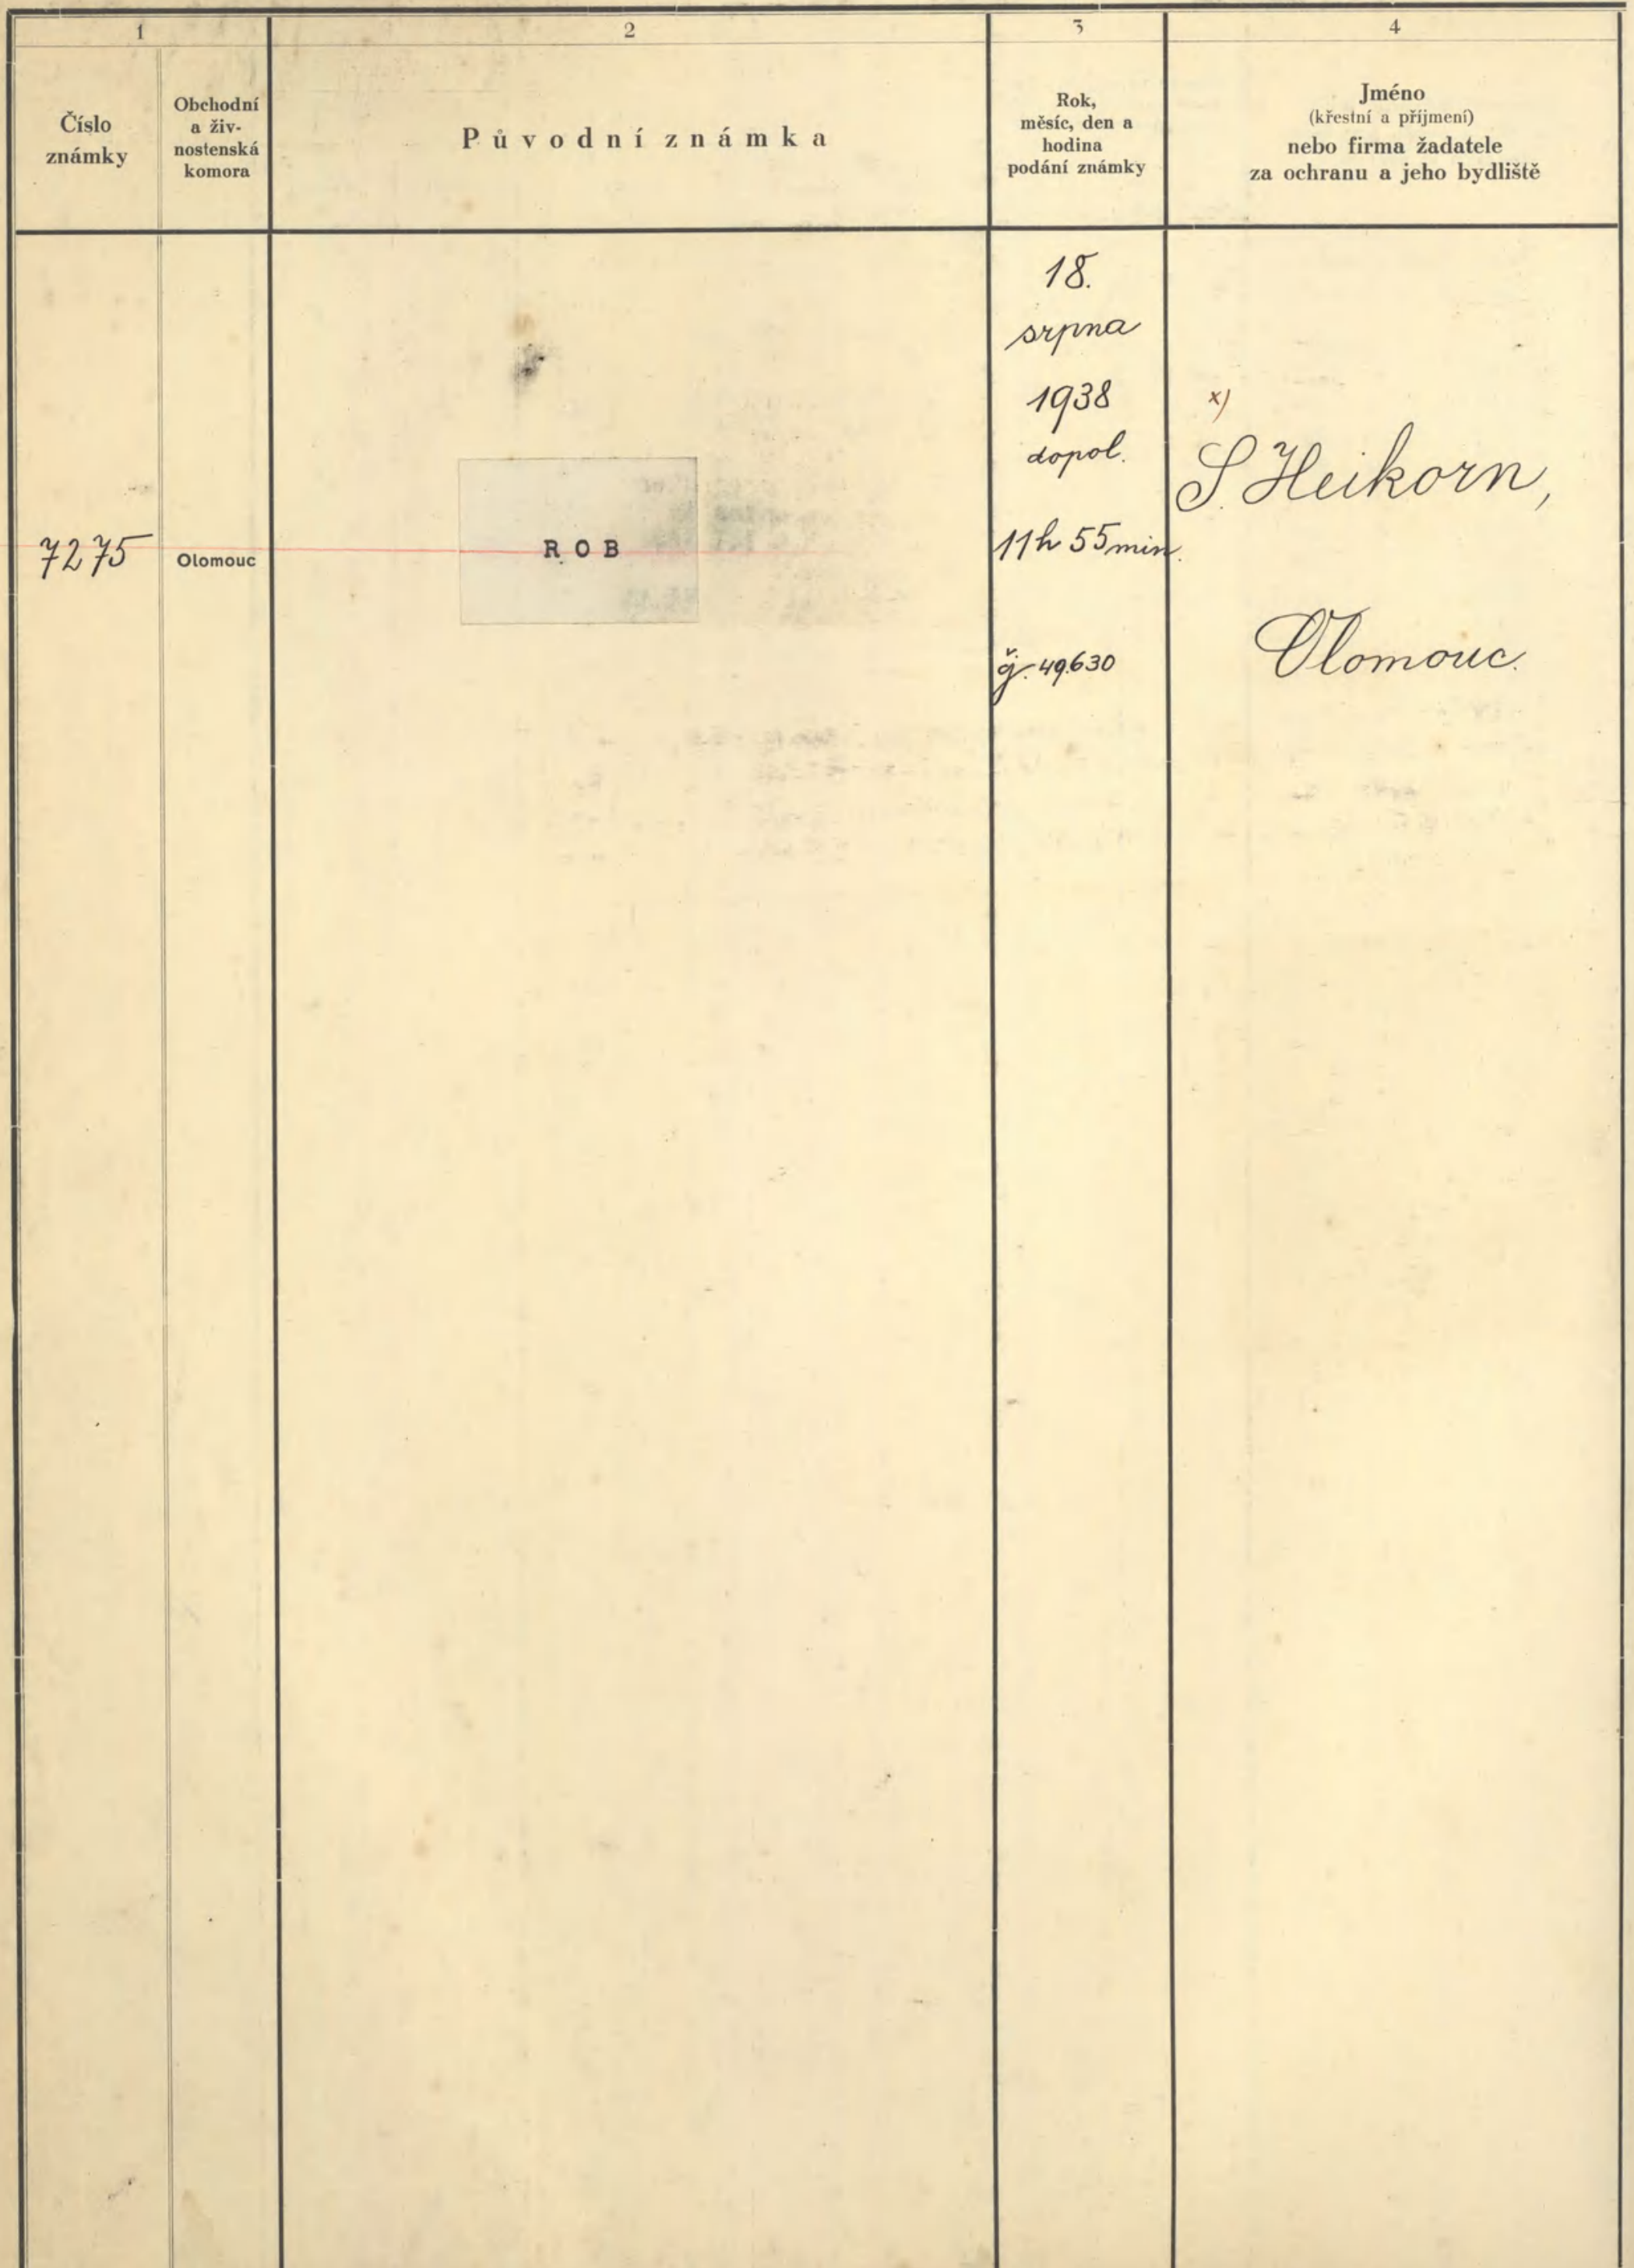 1
2
3
4
Číslo
známky
Obchodní
a živ-
nostenská
komora
Původní známka
Rok,
měsíc, den a
hodina
podání známky
Jméno
(křestní a příjmení)
nebo firma žadatele
za ochranu a jeho bydliště
7275
Olomouc
ROB
18.
srpna
1938
dopol.
11h 55min.
čj. 49.630
x)
S. Heikorn,
Olomouc.